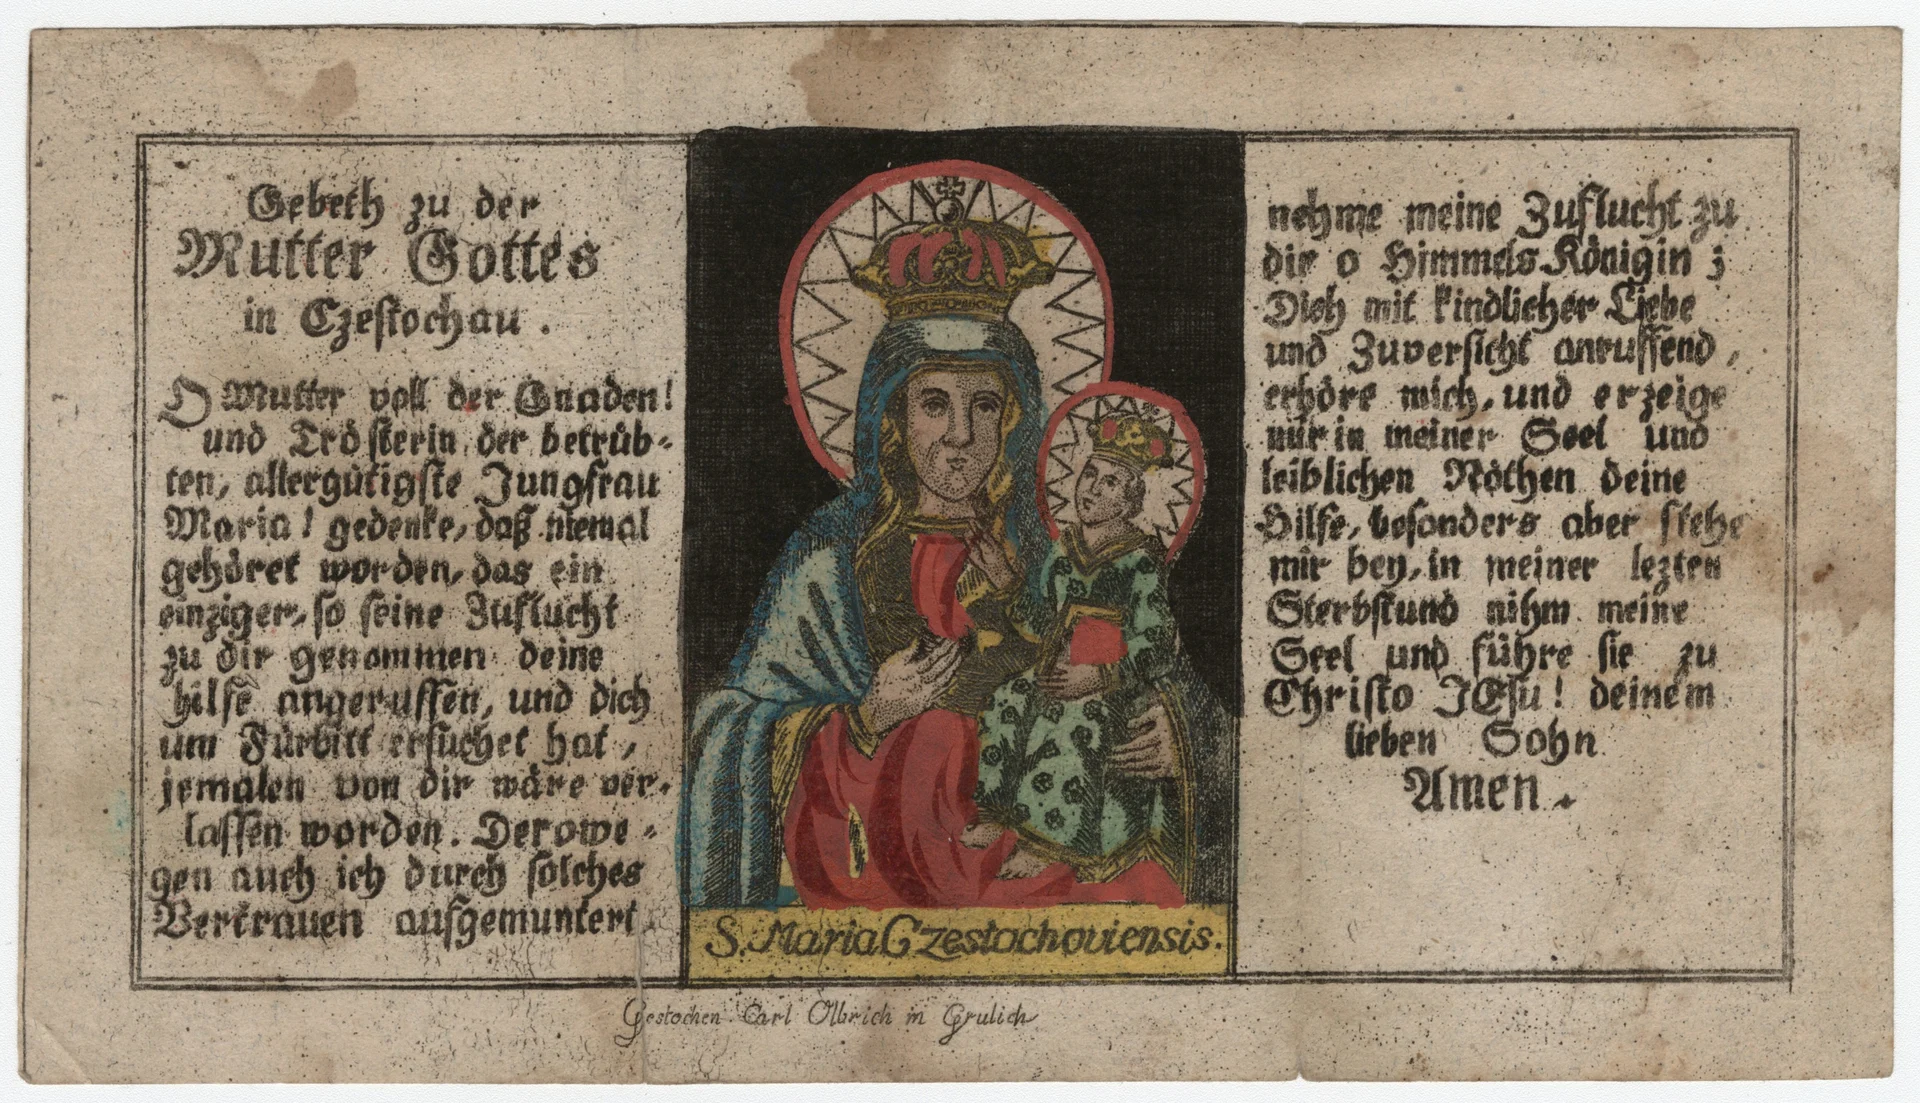 Gebeth zu der
Mutter Gottes
in Czestochau.
O Mutter voll der Gnaden!
und Trösterin, der betrüb-
ten, allergütigste Jungfrau
Maria! gedenke, daß niemal
gehöret worden, das ein
einziger, so seine Zuflucht
zu dir genommen deine
hilfe angeruffen, und dich
um Fürbitt ersuchet hat,
jemalen von dir wäre ver-
lassen worden. Derowe-
gen auch ich durch solches
Vertrauen aufgemuntert
nehme meine Zuflucht zu
dir o Himmels Königin;
Dich mit kindlicher Liebe
und Zuversicht anruffend,
erhöre mich, und erzeige
mir in meiner Seel und
leiblichen Nöthen deine
Hilfe, besonders aber stehe
mir bey, in meiner lezten
Sterbstund nihm meine
Seel und führe sie zu
Christo JEsu! deinem
lieben Sohn
Amen.
S. Maria Czestochoviensis.
Gestochen Carl Olbrich in Grulich